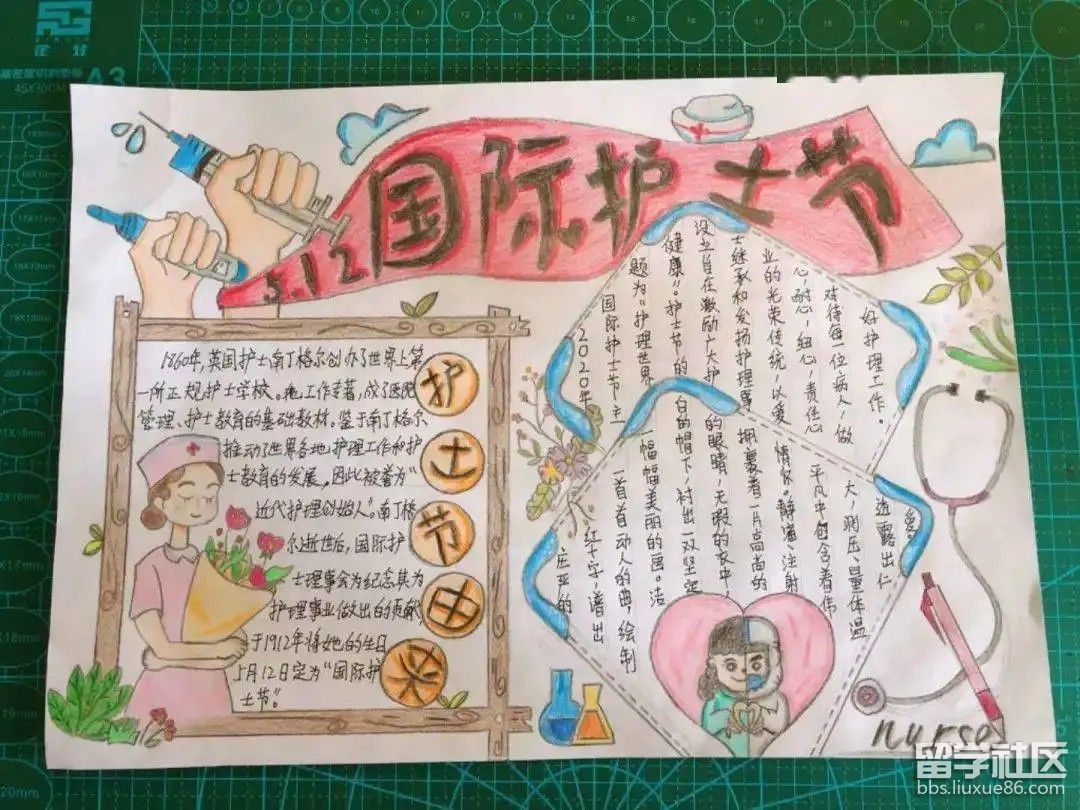 金仕
高密度切割垫板 A3
45X30CM
国际护士节
5.12
1860年,英国护士南丁格尔创办了世界上第
一所正规护士学校。她工作专著,成了医院
管理、护士教育的基础教材。鉴于南丁格尔
推动了世界各地护理工作和护
士教育的发展。因此被誉为“
近代护理创始人”。南丁格
尔逝世后,国际护
士理事会为纪念其为
护理事业做出的贡献
于1912年将她的生日
5月12日定为“国际护
士节”。
护
士
节
由
来
2020年
国际护士节主
题为“护理世界
健康”。护士节的
设立旨在激励广大护
士继承和发扬护理事
业的光荣传统,以爱
心,耐心,细心,责任心
对待每一位病人,做
好护理工作。
庄严的
红十字谱出
一首首动人的曲,绘制
一幅幅美丽的画。洁
白的帽下,衬出一双坚定
的眼睛,无暇的衣中,
拥裹着一片高尚的
情怀。静滴、注射
平凡中包含着伟
大,测压、量体温
透露出仁
爱。
nurse
留学社区
bbs.liuxue86.com